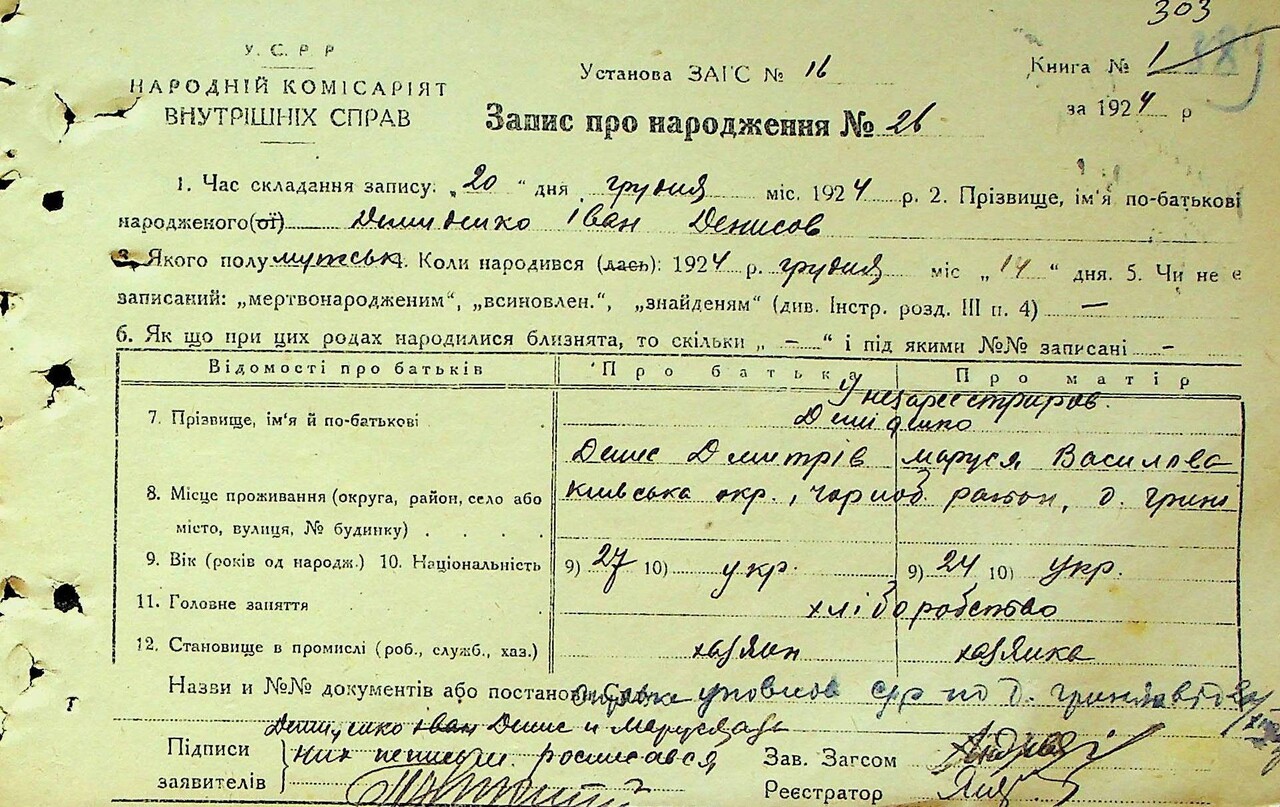 303
У. С. Р. Р
НАРОДНІЙ КОМІСАРІЯТ
ВНУТРІШНІХ СПРАВ
Установа ЗАГС № 16
Книга № 1
189
за 1924 р
Запис про народження № 26
1. Час складання запису: „20“ дня грудня міс. 1924 р. 2. Прізвище, ім'я по-батькові
народженого(ої) Демиденко Іван Денисов
3. Якого полу мужськ 4. Коли народився (лась): 1924 р. грудня міс „14“ дня. 5. Чи не є
записаний: „мертвонародженим“, „всиновлен.“, „знайденям“ (див. Інстр. розд. III п. 4) —
6. Як що при цих родах народилися близнята, то скільки „ — “ і під якими №№ записані —
Відомості про батьків Про батька Про матір
У незареєстриров.
7. Прізвище, ім'я й по-батькові Демиденко
Денис Дмитрів Маруся Василева
8. Місце проживання (округа, район, село або Київська окр., Чорноб. район, д.
місто, вулиця, № будинку)
9. Вік (років од народж.) 10. Національність 9) 27 10) укр. 9) 24 10) укр.
11. Головне заняття хліборобство
12. Становище в промислі (роб., служб., хаз.) хазяин хазяика
Назви и №№ документів або постанов Справка уповнов с/р по д.
Демиденко Іван Денис и Маруся
Підписи них неписьм. росписався
заявителів
Зав. Загсом
Реєстратор